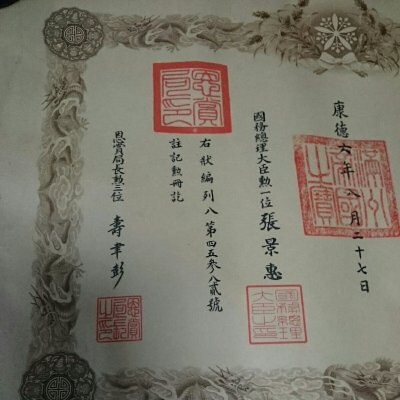 康德六年八月二十七日
國務總理大臣勲一位 張景惠
右狀編列八第四五參八貳號
註記勲冊訖
恩賞局長勲三位 壽聿彭
恩賞局印